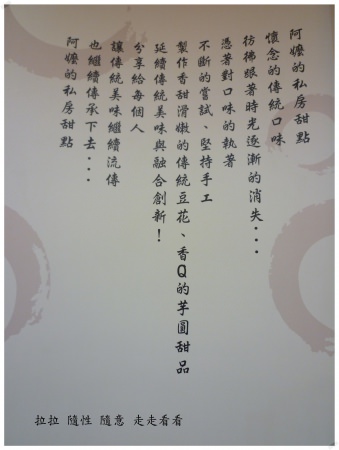 阿嬤的私房甜點
懷念的傳統口味
彷彿跟著時光逐漸的消失...
憑著對口味的執著
不斷的嘗試、堅持手工
製作香甜滑嫩的傳統豆花、香Q的芋圓甜品
延續傳統美味與融合創新！
分享給每個人
讓傳統美味繼續流傳
也繼續傳承下去...
阿嬤的私房甜點
拉拉 隨性 隨意 走走看看